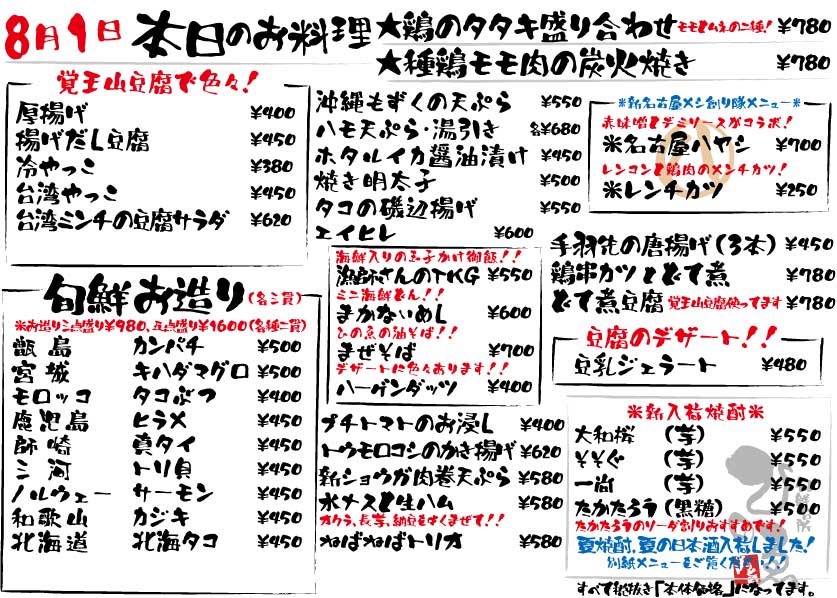 8月9日 本日のお料理
★鶏のタタキ盛り合わせ モモとムネの二種! ¥780
★種鶏モモ肉の炭火焼き ¥780
覚王山豆腐で色々!
厚揚げ ¥400
揚げだし豆腐 ¥450
冷やっこ ¥380
台湾やっこ ¥450
台湾ミンチの豆腐サラダ ¥620
旬鮮お造り(各三貫)
※お造り三点盛り¥980、五点盛り¥1600(各種二貫)
甑島 カンパチ ¥500
宮城 キハダマグロ ¥500
モロッコ タコぶつ ¥400
鹿児島 ヒラメ ¥450
師崎 真タイ ¥450
三河 トリ貝 ¥450
ノルウェー サーモン ¥450
和歌山 カジキ ¥450
北海道 北海タコ ¥450
沖縄もずくの天ぷら ¥550
ハモ天ぷら・湯引き 各¥680
ホタルイカ醤油漬け ¥450
焼き明太子 ¥500
タコの磯辺揚げ ¥550
エイヒレ ¥600
海鮮入りの玉子かけ御飯!!
漁師さんのTKG ¥550
ミニ海鮮どん!!
まかないめし ¥600
ひの魚の油そば!!
まぜそば ¥700
デザートに色々あります!!
ハーゲンダッツ ¥400
プチトマトのお浸し ¥400
トウモロコシのかき揚げ ¥620
新ショウガ肉巻天ぷら ¥580
水ナスと生ハム ¥580
オクラ、長芋、納豆をよくまぜて!!
ねばねばトリオ ¥580
※新名古屋メシ創り隊メニュー※
赤味噌とデミソースがコラボ!
※名古屋ハヤシ ¥700
レンコンと鶏肉のメンチカツ!
※レンチカツ ¥250
手羽先の唐揚げ(3本) ¥450
鶏串カツとどて煮 ¥780
どて煮豆腐 覚王山豆腐使ってます ¥780
豆腐のデザート!!
豆乳ジェラート ¥480
※新入荷焼酎※
大和桜 (芋) ¥550
そそぐ (芋) ¥550
一尚 (芋) ¥550
たかたろう (黒糖) ¥500
たかたろうのソーダ割りおすすめです!
夏焼酎、夏の日本酒入荷しました!
別紙メニューをご覧ください!!
すべて税抜き「本体価格」になってます。